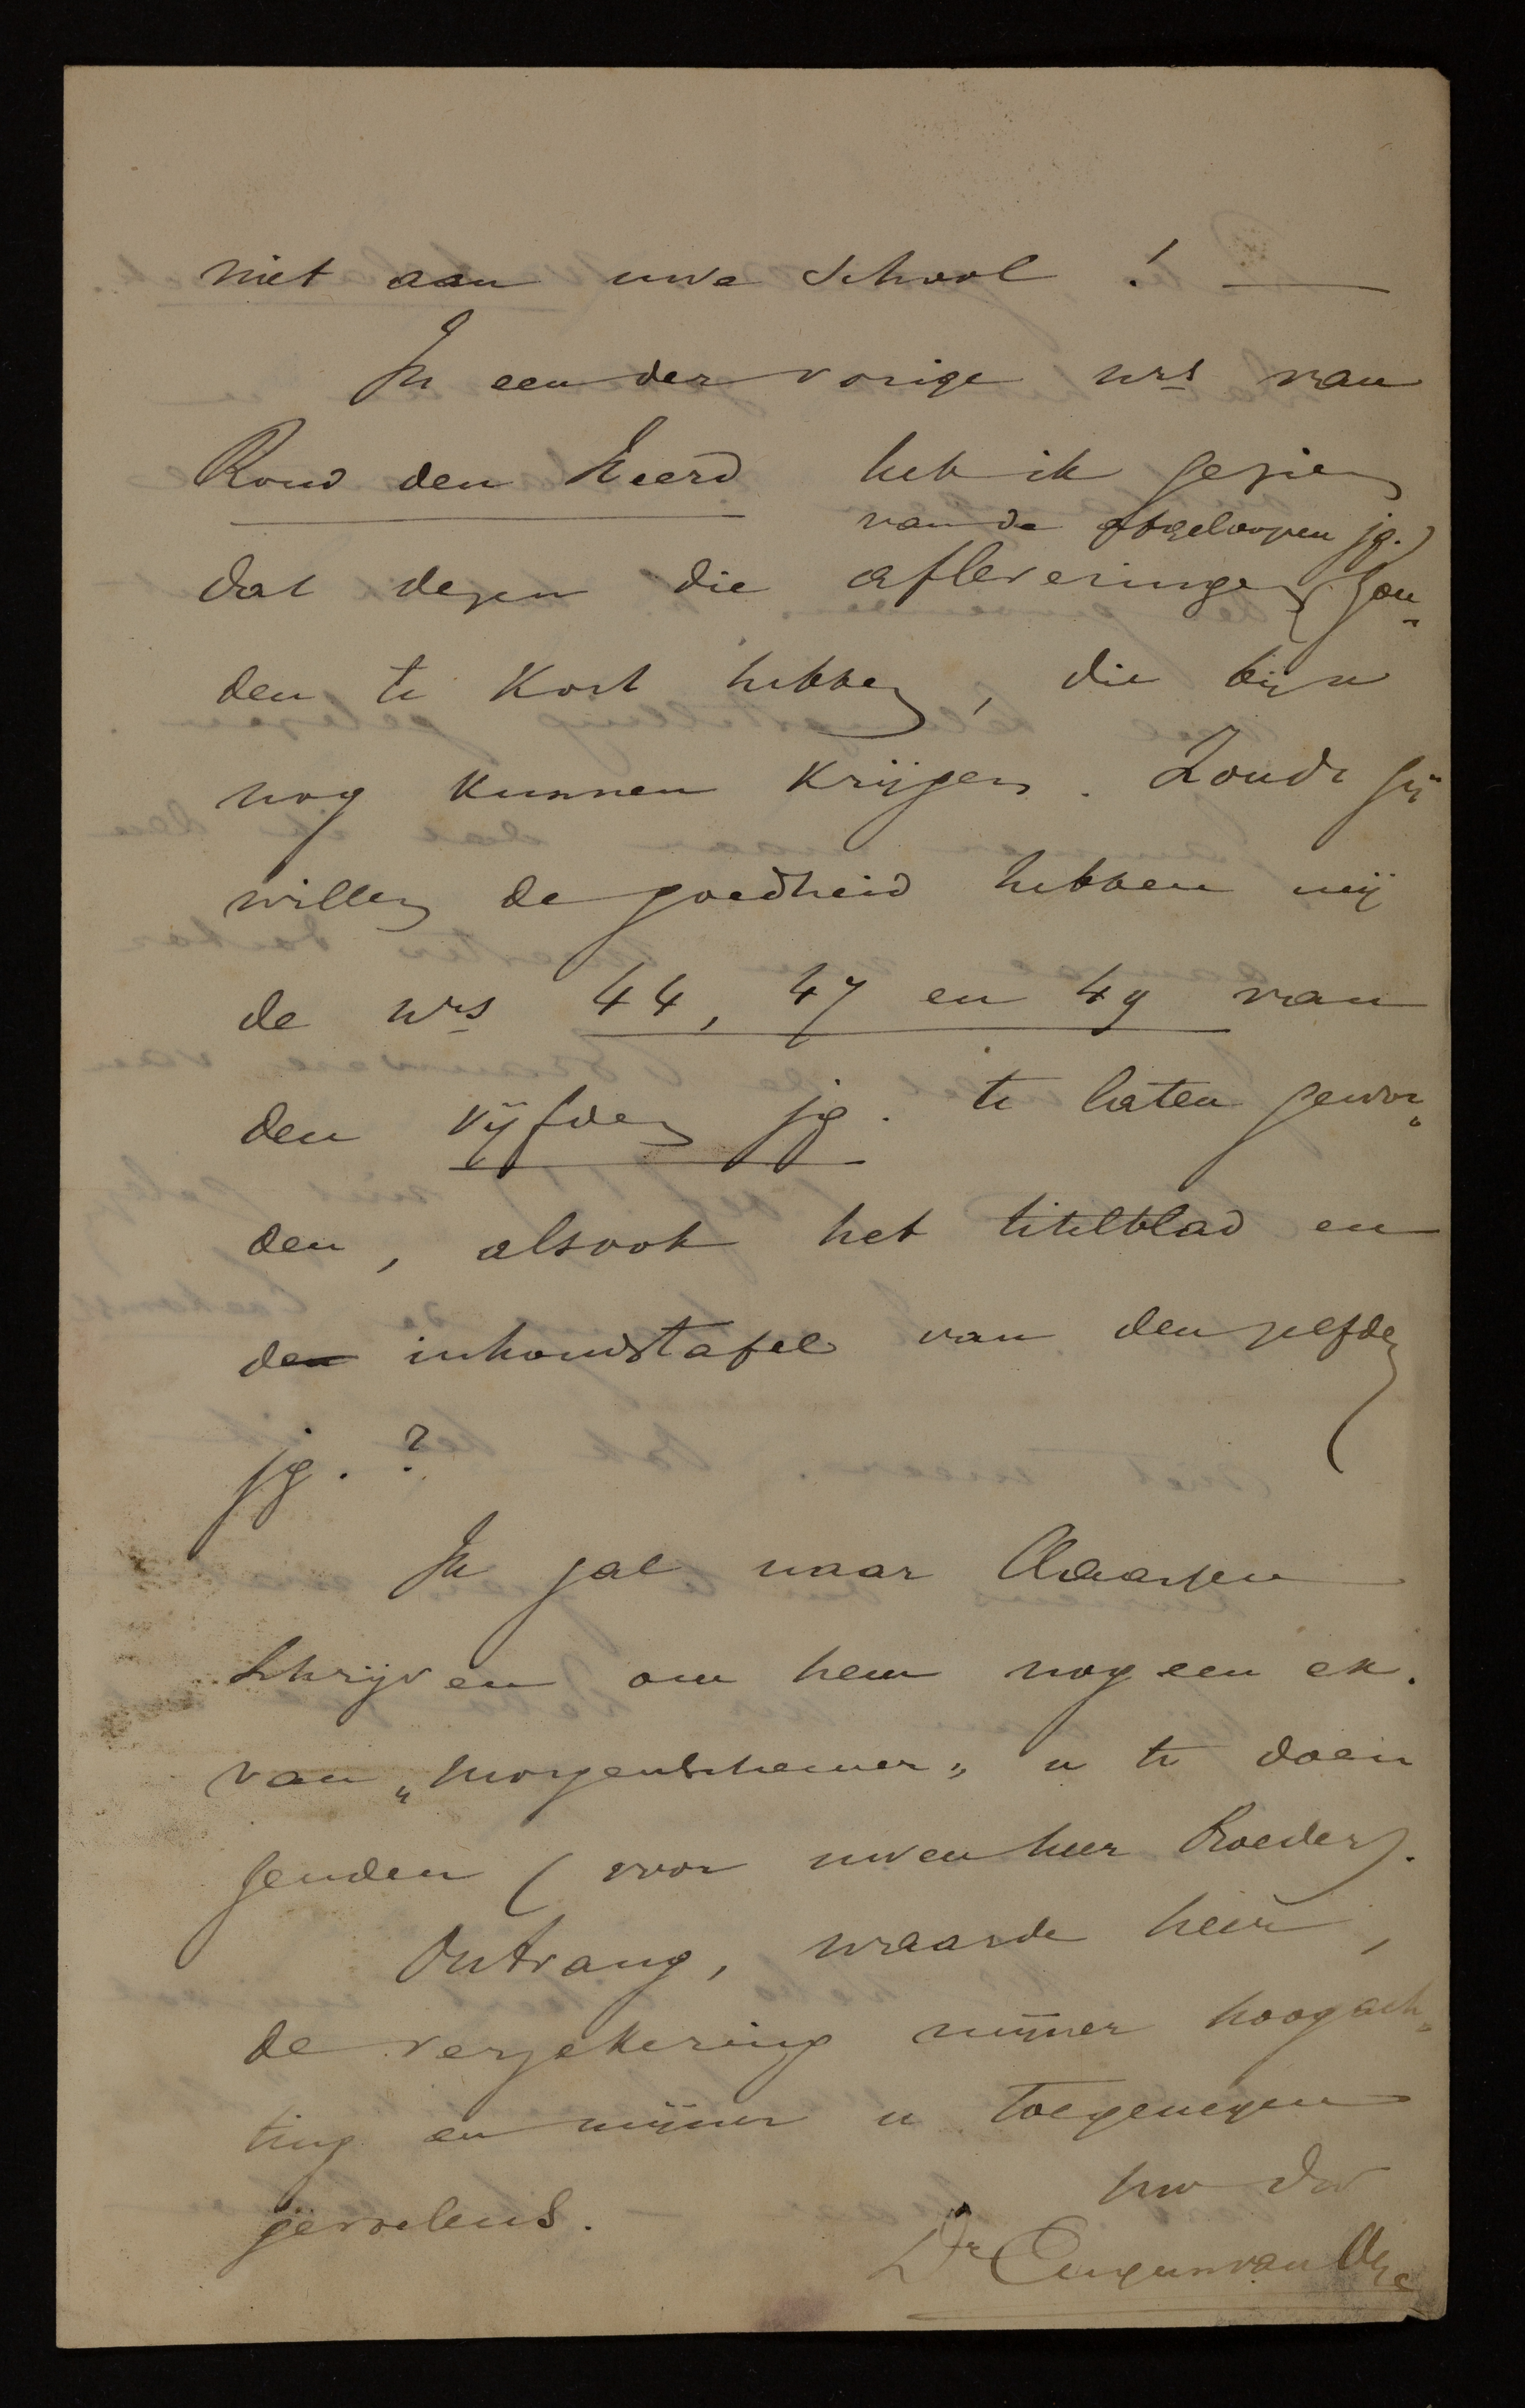 niet aan uwe School ! —
In een der vorige nrs van
Rond den Heerd heb ik gezien
van de afgeloopen jg.
dat dezen die afleveringen zou„
den te kort hebben, die bijn
nog kunnen krijgen. Zoudt gij
willen de goedheid hebben mij
de nrs 44, 47 en 49 van
den vijfden jg. te laten gewor„
den, alsook het titelblad en
den inhoudstafel van denzelfden
jg. ?
Ik zal naar
schrijven om hem nog een ex.
van „Morgenschemer„ u te doen
zenden (voor uwen heer Broeder).
Ontvang, waarde heer,
de verzekering mijner hoogach„
ting en mijner u toegenegen
gevoelens.
uw dr
Dr Eugeen van Oye